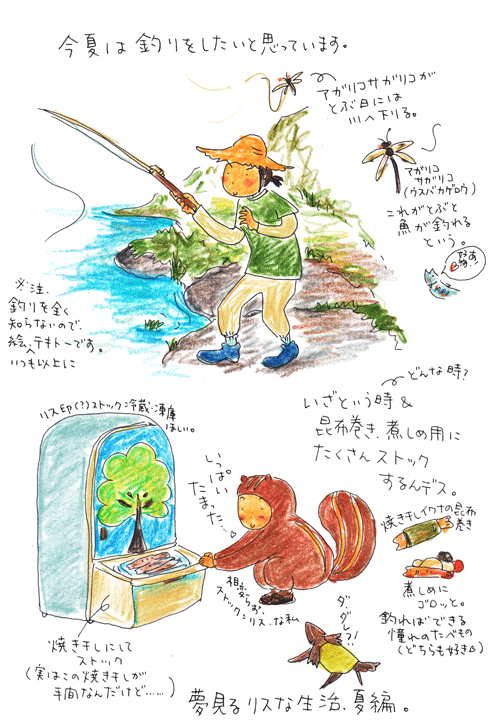 今夏は釣りをしたいと思っています。
アガリコサガリコが
とぶ日には
川へ下りる。
アガリコ
サガリコ
(ウスバカゲロウ)
これがとぶと
魚が釣れる
という。
※注.
釣りを全く
知らないので、
絵、テキトーです。
いつも以上に
どんな時?
いざという時&
昆布巻き、煮しめ用に
たくさんストック
するんデス。
リス印(?)ストック冷蔵・凍庫
ほしい。
いっぱい
たまった…♡
相変らず
ストックニリス、な私
焼き干しイワナの昆布
巻き
煮しめに
ゴロッと。
釣ればできる
憧れのたべもの
(どちらも好き♡)
ダ、ダレ?!
焼き干しにして
ストック
(実はこの焼き干しが
手間なんだけど……)
夢見るリスな生活、夏編。